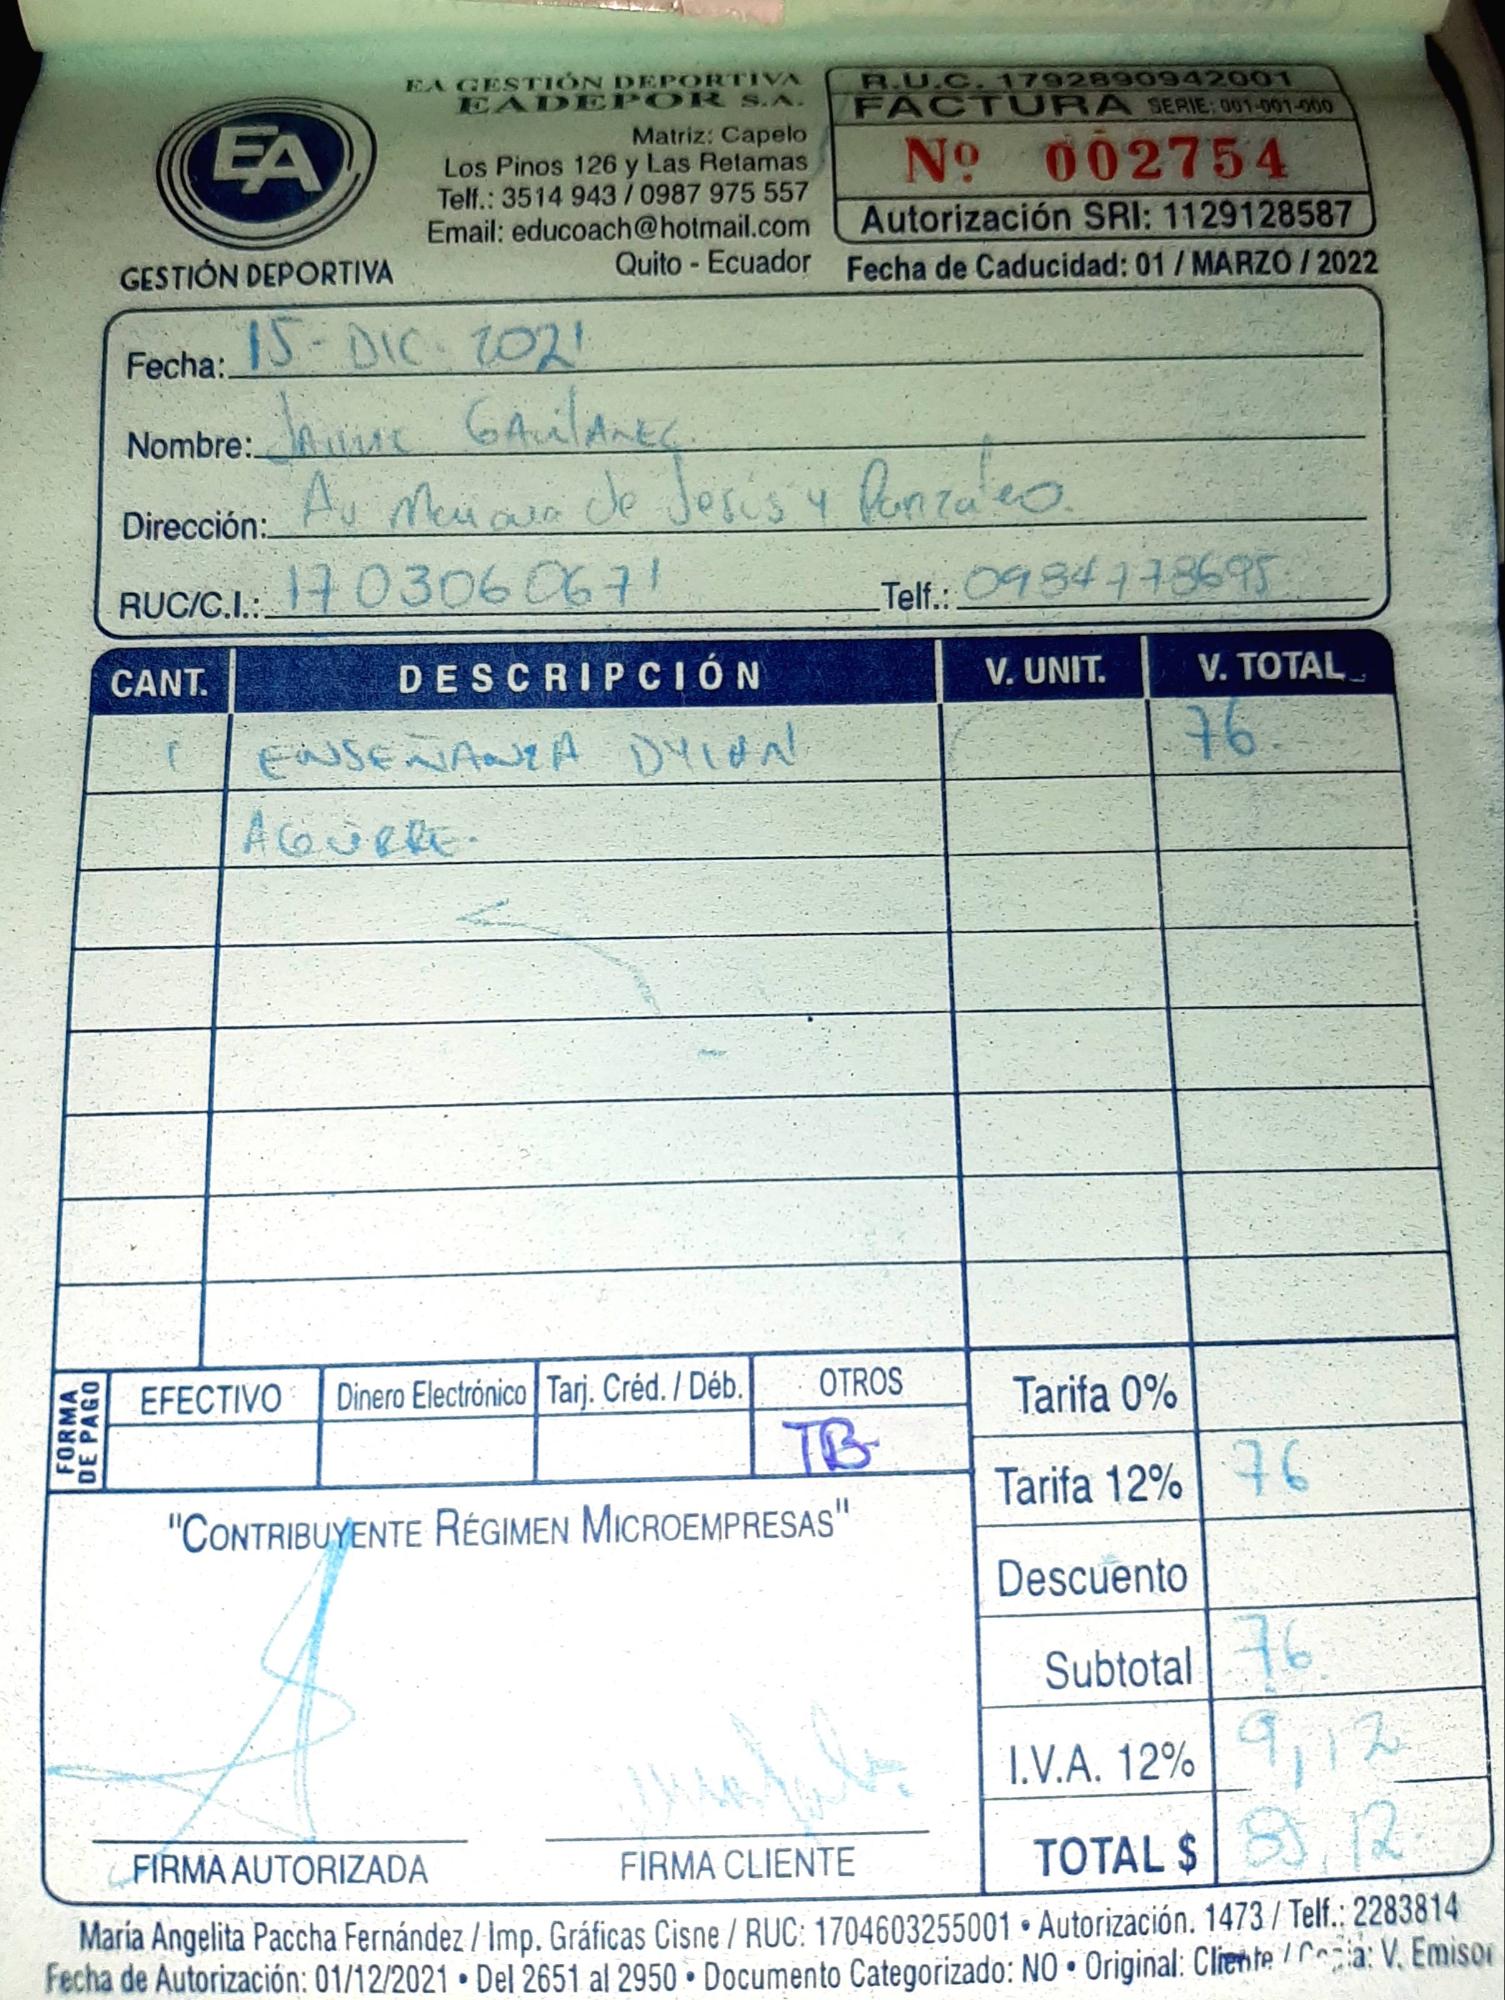 EA GESTIÓN DEPORTIVA
EADEPOR S.A.
Matriz: Capelo
Los Pinos 126 y Las Retamas
Telf.: 3514 943 / 0987 975 557
Email: educoach@hotmail.com
Quito - Ecuador
EA
GESTIÓN DEPORTIVA
R.U.C. 1792890942001
FACTURA SERIE: 001-001-000
Nº 002754
Autorización SRI: 1129128587
Fecha de Caducidad: 01 / MARZO / 2022
Fecha: 15 - DIC - 2021
Nombre: Jaime GAVILANEZ
Dirección: Av Mariana de Jesús y Panzaleo.
RUC/C.I.: 1703060671 Telf.: 0984778695
CANT. DESCRIPCIÓN V. UNIT. V. TOTAL
1 ENSEÑANZA DYLAN 76.
AGUIRRE.
FORMA DE PAGO
EFECTIVO Dinero Electrónico Tarj. Créd. / Déb. OTROS
TB
Tarifa 0%
Tarifa 12% 76
Descuento
Subtotal 76
I.V.A. 12% 9,12
TOTAL $ 85,12
"CONTRIBUYENTE RÉGIMEN MICROEMPRESAS"
FIRMA AUTORIZADA FIRMA CLIENTE
María Angelita Paccha Fernández / Imp. Gráficas Cisne / RUC: 1704603255001 • Autorización. 1473 / Telf.: 2283814
Fecha de Autorización: 01/12/2021 • Del 2651 al 2950 • Documento Categorizado: NO • Original: Cliente / Copia: V. Emisor